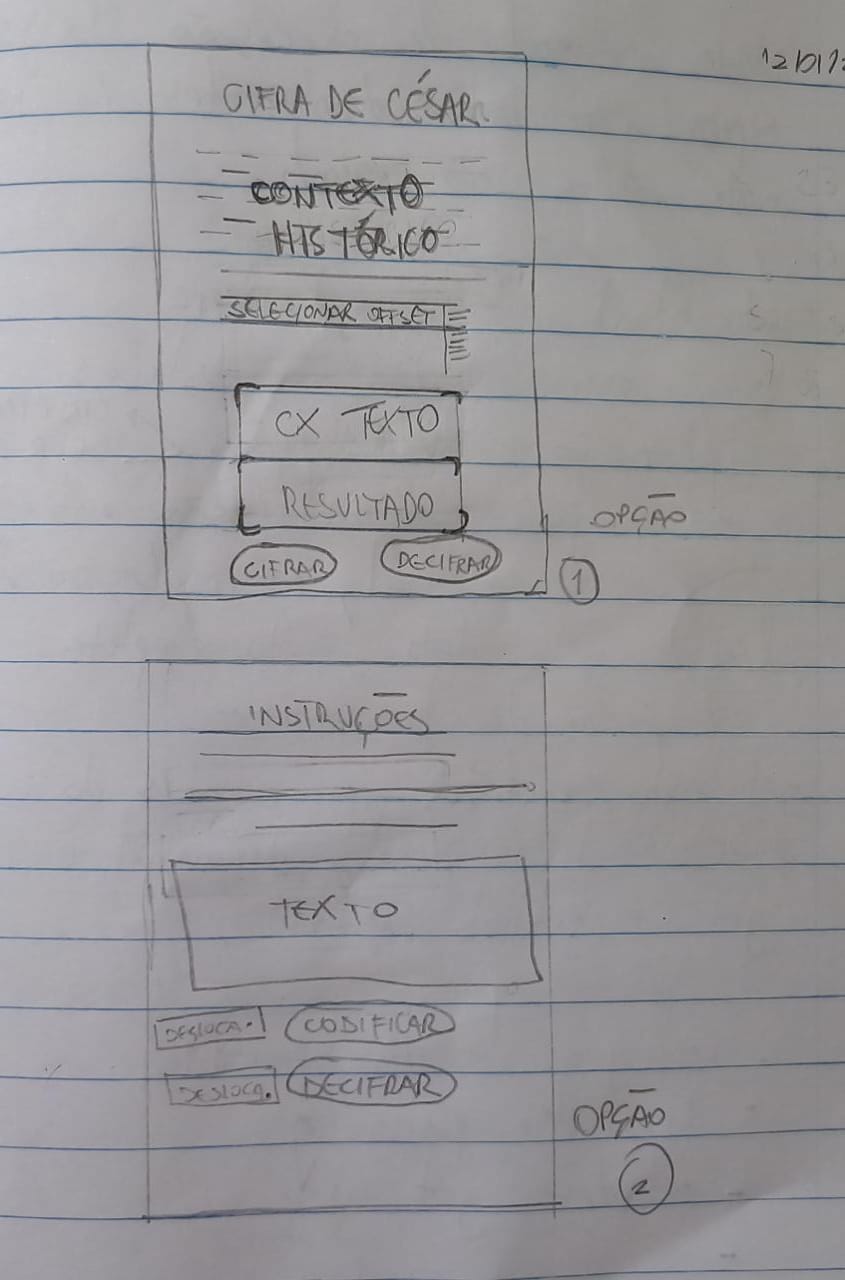 CIFRA DE CÉSAR.
CONTEXTO
HISTÓRICO
SELECIONAR OFFSET
CX TEXTO
RESULTADO
CIFRAR DECIFRAR
OPÇÃO
1
INSTRUÇÕES
TEXTO
DESLOCA. CODIFICAR
DESLOCA. DECIFRAR
OPÇÃO
2